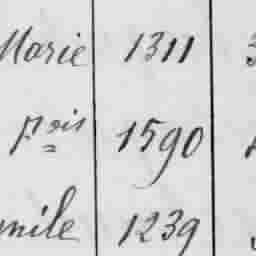 Marie 1311 3
Fçois 1590
mile 1239